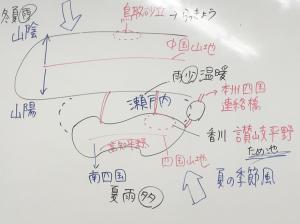 鳥取砂丘→らっきょう
冬夏雨
山陰
中国山地
雨少 温暖
山陽
瀬戸内
本州四国
連絡橋
香川 讃岐平野
ため池
高知平野
四国山地
南四国
夏雨多
夏の季節風